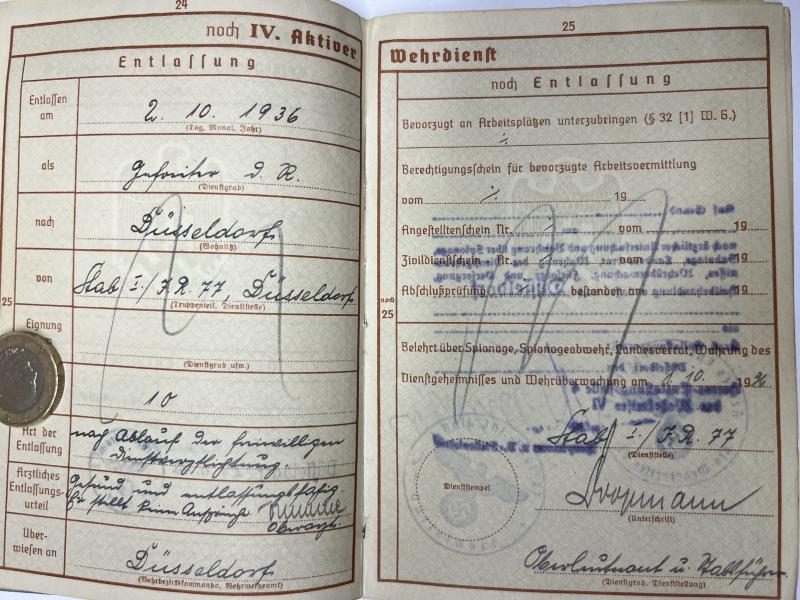 24
noch IV. Aktiver
Entlassung
Entlassen am
2. 10. 1936
(Tag, Monat, Jahr)
als
Gefreiter d. R.
(Dienstgrad)
nach
Düsseldorf
(Wohnsitz)
von
Stab I./J.R. 77, Düsseldorf
(Truppenteil, Dienststelle)
25
Eignung
(Dienstgrad usw.)
10
Art der Entlassung
nach Ablauf der freiwilligen
Dienstverpflichtung.
Ärztliches Entlassungs-urteil
Gesund und entlassungsfähig
stellt keine Ansprüche
Oberarzt.
Über-wiesen an
Düsseldorf
(Wehrbezirkskommando, Wehrmeldeamt)
25
Wehrdienst
noch Entlassung
Bevorzugt an Arbeitsplätzen unterzubringen (§ 32 [1] W. G.)
Berechtigungsschein für bevorzugte Arbeitsvermittlung
vom 19
Angestelltenschein Nr. vom 19
Zivildienstschein Nr. vom 19
Abschlußprüfung bestanden am 19
noch 25
Belehrt über Spionage, Spionageabwehr, Landesverrat, Wahrung des
Dienstgeheimnisses und Wehrüberwachung am 10. 1936
Stab I./J.R. 77
(Dienststelle)
Dienststempel
(Unterschrift)
Oberleutnant u.
(Dienstgrad, Dienststellung)